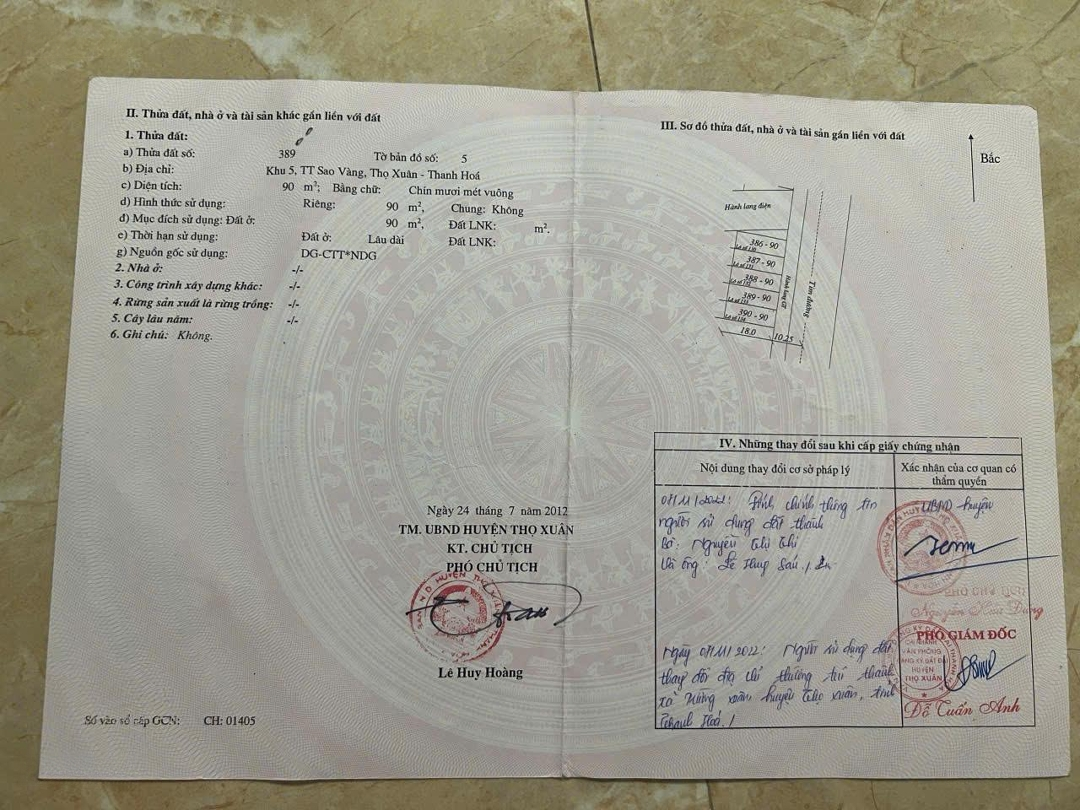 II. Thửa đất, nhà ở và tài sản khác gắn liền với đất
1. Thửa đất:
a) Thửa đất số: 389 Tờ bản đồ số: 5
b) Địa chỉ: Khu 5, TT Sao Vàng, Thọ Xuân - Thanh Hoá
c) Diện tích: 90 m²; Bằng chữ: Chín mươi mét vuông
d) Hình thức sử dụng: Riêng: 90 m², Chung: Không
đ) Mục đích sử dụng: Đất ở: 90 m², Đất LNK: m².
e) Thời hạn sử dụng: Đất ở: Lâu dài Đất LNK:
g) Nguồn gốc sử dụng: DG-CTT*NDG
2. Nhà ở: -/-
3. Công trình xây dựng khác: -/-
4. Rừng sản xuất là rừng trồng: -/-
5. Cây lâu năm: -/-
6. Ghi chú: Không.
Ngày 24 tháng 7 năm 2012
TM. UBND HUYỆN THỌ XUÂN
KT. CHỦ TỊCH
PHÓ CHỦ TỊCH
Lê Huy Hoàng
Số vào sổ cấp GCN: CH: 01405
III. Sơ đồ thửa đất, nhà ở và tài sản gắn liền với đất
Bắc
Hành lang điện
386 - 90
387 - 90
388 - 90
389 - 90
390 - 90
18.0 10.25
Hành lang GT
Tim đường
IV. Những thay đổi sau khi cấp giấy chứng nhận
Nội dung thay đổi cơ sở pháp lý
Xác nhận của cơ quan có
thẩm quyền
Đính chính thông tin
người sử dụng đất thành
Bà: Nguyễn Thị
Và ông: Lê
UBND huyện
PHÓ CHỦ TỊCH
Ngày Người sử dụng đất
thay đổi địa chỉ thường trú thành
xã Xuân huyện Thọ Xuân, tỉnh
Thanh Hoá.
PHÓ GIÁM ĐỐC
CHI NHÁNH
VĂN PHÒNG
ĐĂNG KÝ ĐẤT ĐAI
HUYỆN
THỌ XUÂN
Đỗ Tuấn Anh